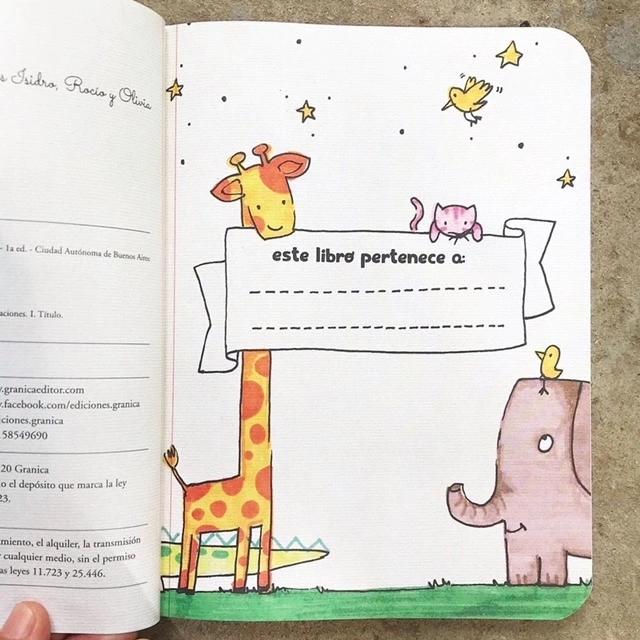 s Isidro, Rocío y Olivia
- 1a ed. - Ciudad Autónoma de Buenos Aires
aciones. I. Título.
.granicaeditor.com
.facebook.com/ediciones.granica
ciones.granica
58549690
20 Granica
o el depósito que marca la ley
23.
miento, el alquiler, la transmisión
cualquier medio, sin el permiso
as leyes 11.723 y 25.446.
este libro pertenece a: